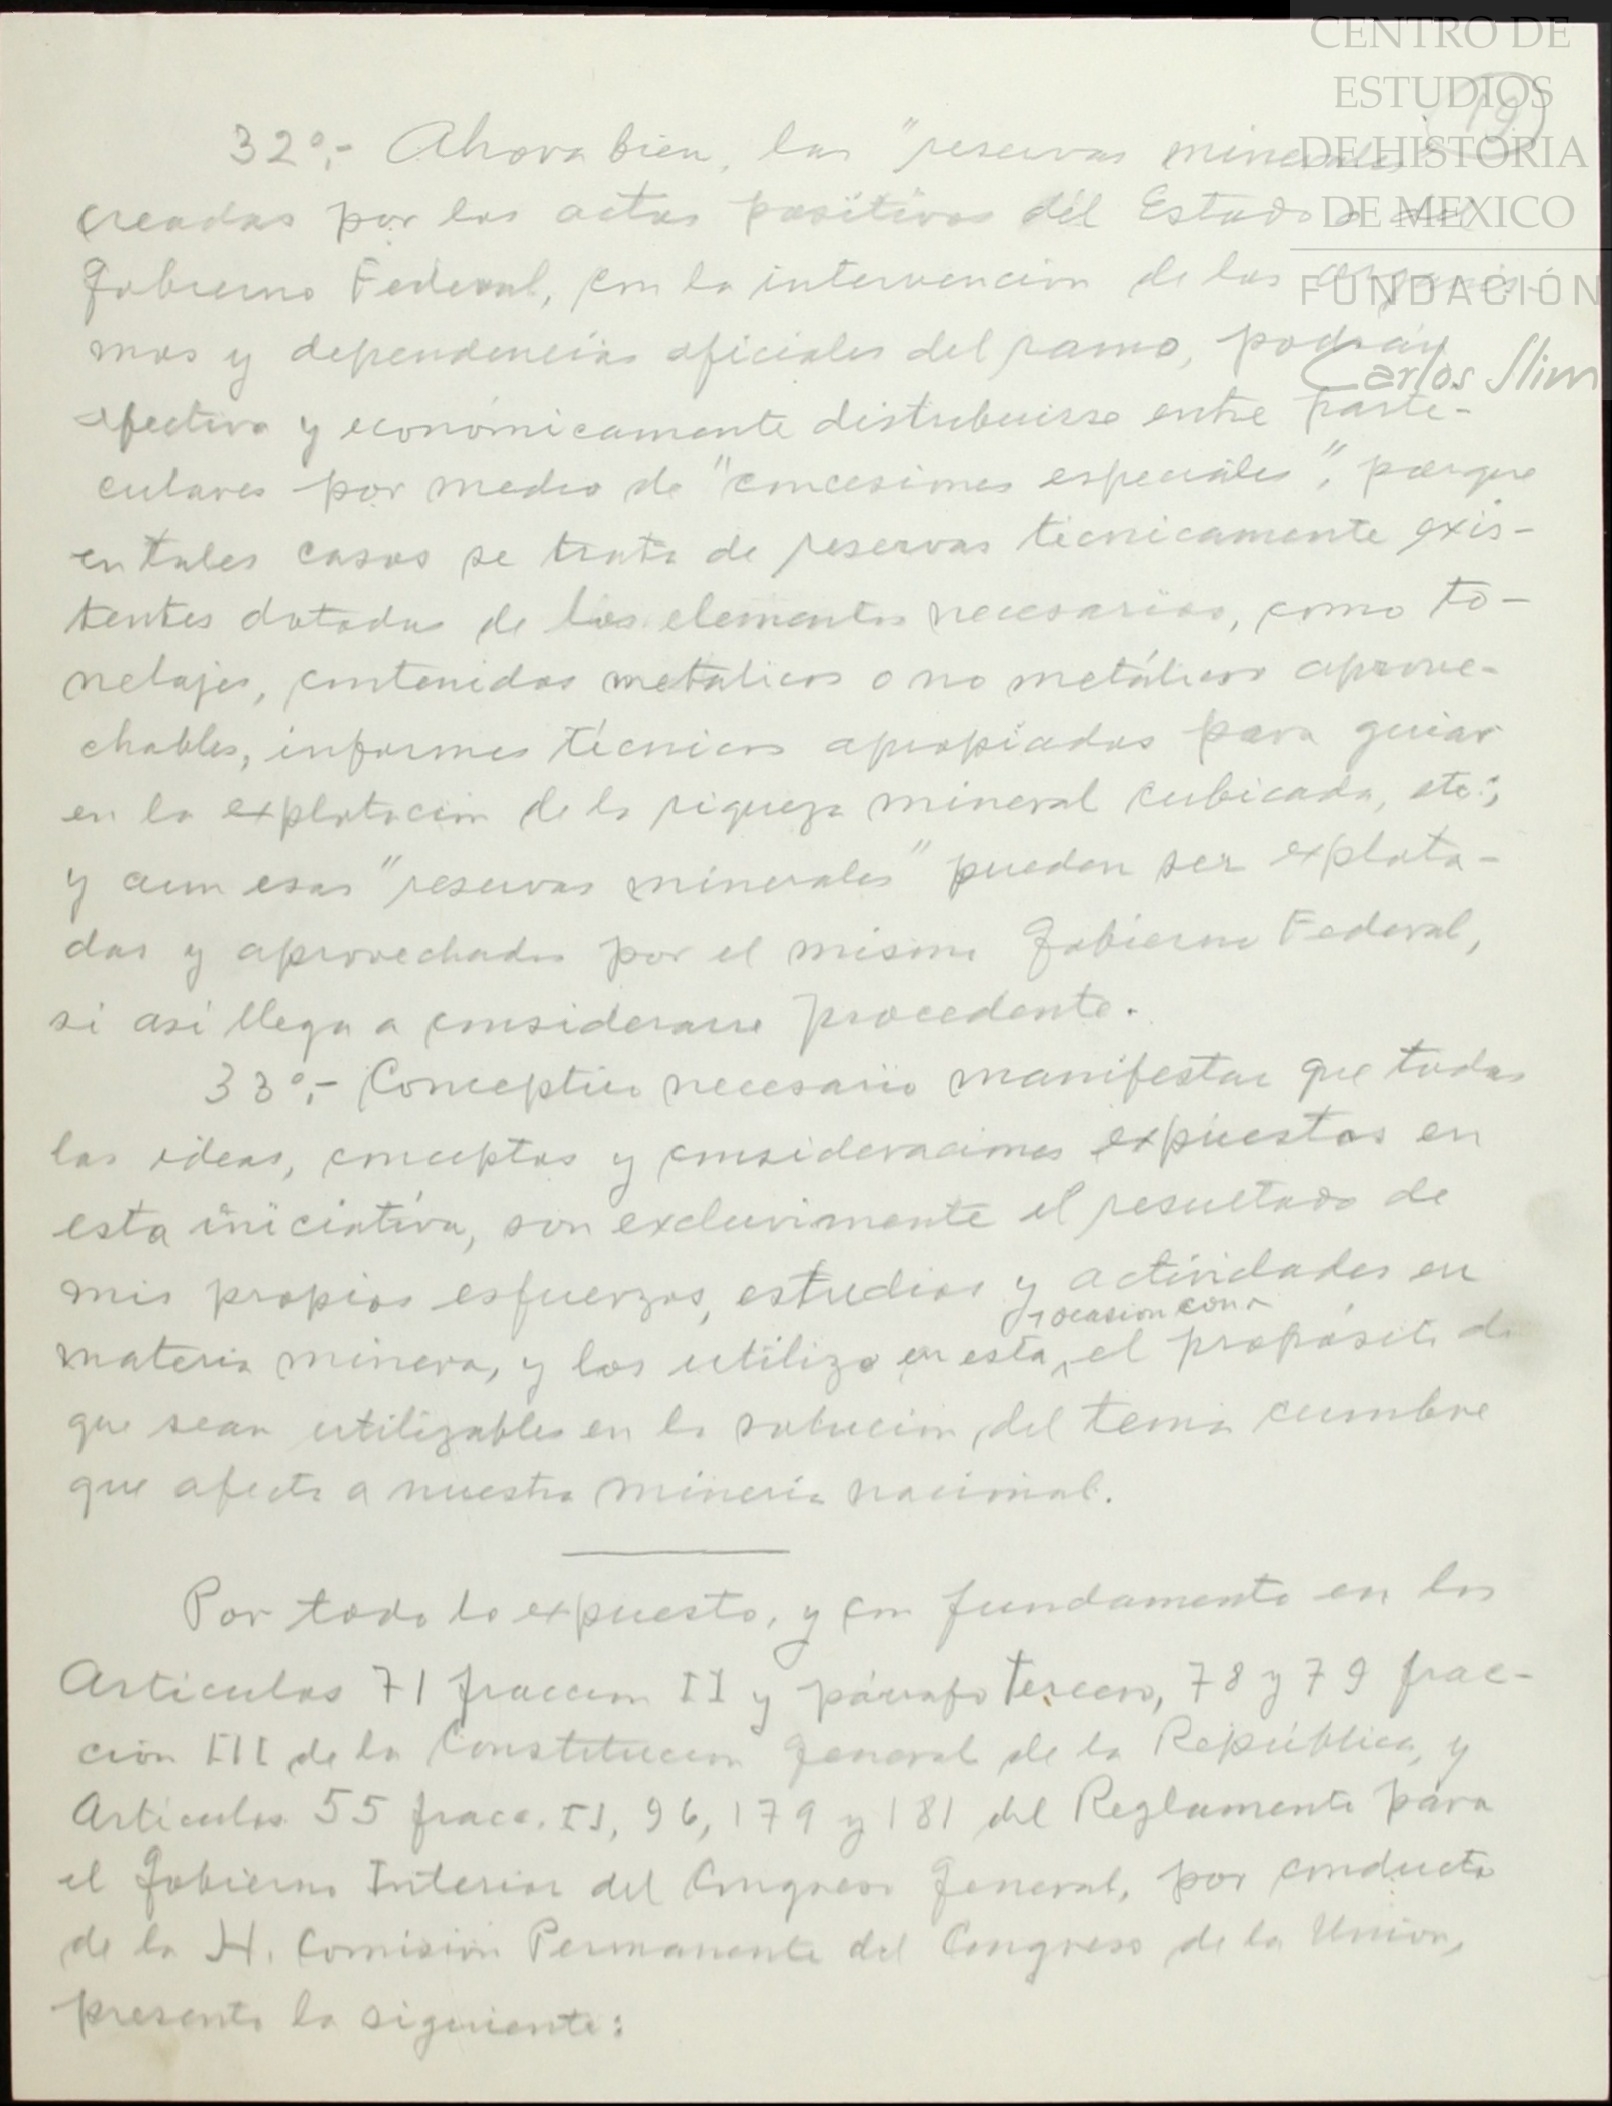 CENTRO DE
ESTUDIOS
DE HISTORIA
DE MEXICO
FUNDACIÓN
Carlos Slim
(19)
32º.- Ahora bien, las "reservas minerales"
creadas por los actos positivos del Estado o del
Gobierno Federal, con la intervención de los organis-
mos y dependencias oficiales del ramo, podrán
efectiva y económicamente distribuirse entre parti-
culares por medio de "concesiones especiales", porque
en tales casos se trata de reservas técnicamente exis-
tentes dotadas de los elementos necesarios, como to-
nelajes, contenidos metálicos o no metálicos aprove-
chables, informes técnicos apropiados para guiar
en la explotación de la riqueza mineral cubicada, etc.;
y aun esas "reservas minerales" pueden ser explota-
das y aprovechadas por el mismo Gobierno Federal,
si así llega a considerarse procedente.
33º.- Conceptúo necesario manifestar que todas
las ideas, conceptos y consideraciones expuestas en
esta iniciativa, son exclusivimente el resultado de
mis propios esfuerzos, estudios y actividades en
ocasión con
materia minera, y los utilizo en esta el propósito de
que sean utilizables en la solución del tema cumbre
que afecta a nuestra minería nacional.
Por todo lo expuesto, y con fundamento en los
Artículos 71 fracción II y párrafo tercero, 78 y 79 frac-
ción III de la Constitución General de la República, y
Artículos 55 fracc. II, 96, 179 y 181 del Reglamento para
el Gobierno Interior del Congreso General, por conducto
de la H. Comisión Permanente del Congreso de la Unión,
presento la siguiente: